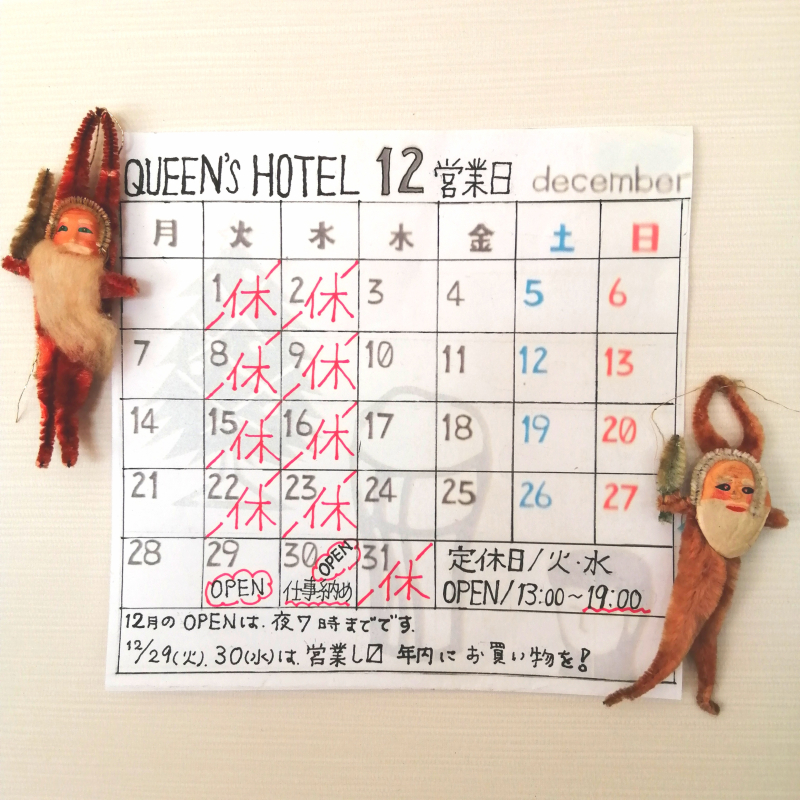 QUEEN'S HOTEL 12 営業日 december
月 火 水 木 金 土 日
1 休 2 休 3 4 5 6
7 8 休 9 休 10 11 12 13
14 15 休 16 休 17 18 19 20
21 22 休 23 休 24 25 26 27
28 29 OPEN 30 OPEN 仕事納め 31 休
定休日/火・水
OPEN/13:00～19:00
12月の OPENは、夜7時までです。
12/29(火)、30(水)は、営業し〼 年内に お買い物を!